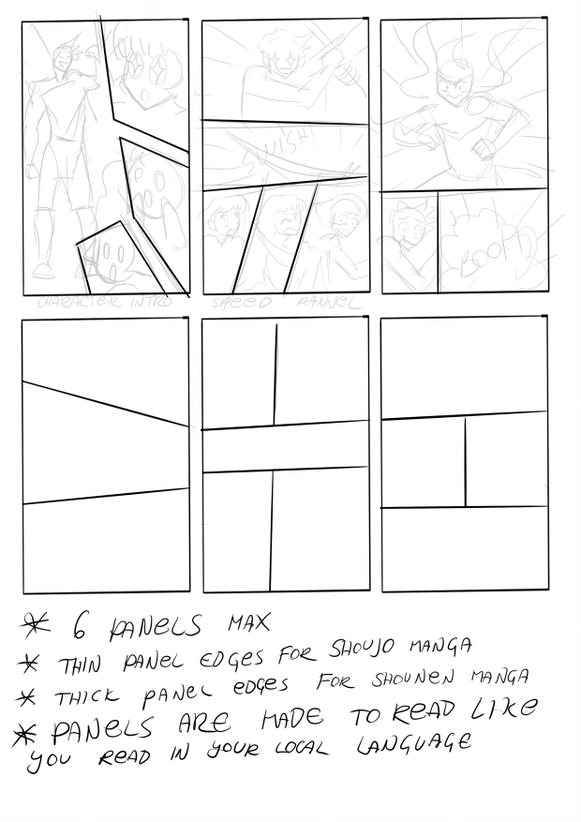 WISH
BOOM
CHARACTER INTRO
SPEED PANNEL
* 6 PANELS MAX
* THIN PANEL EDGES FOR SHOUJO MANGA
* THICK PANEL EDGES FOR SHOUNEN MANGA
* PANELS ARE MADE TO READ LIKE
YOU READ IN YOUR LOCAL LANGUAGE